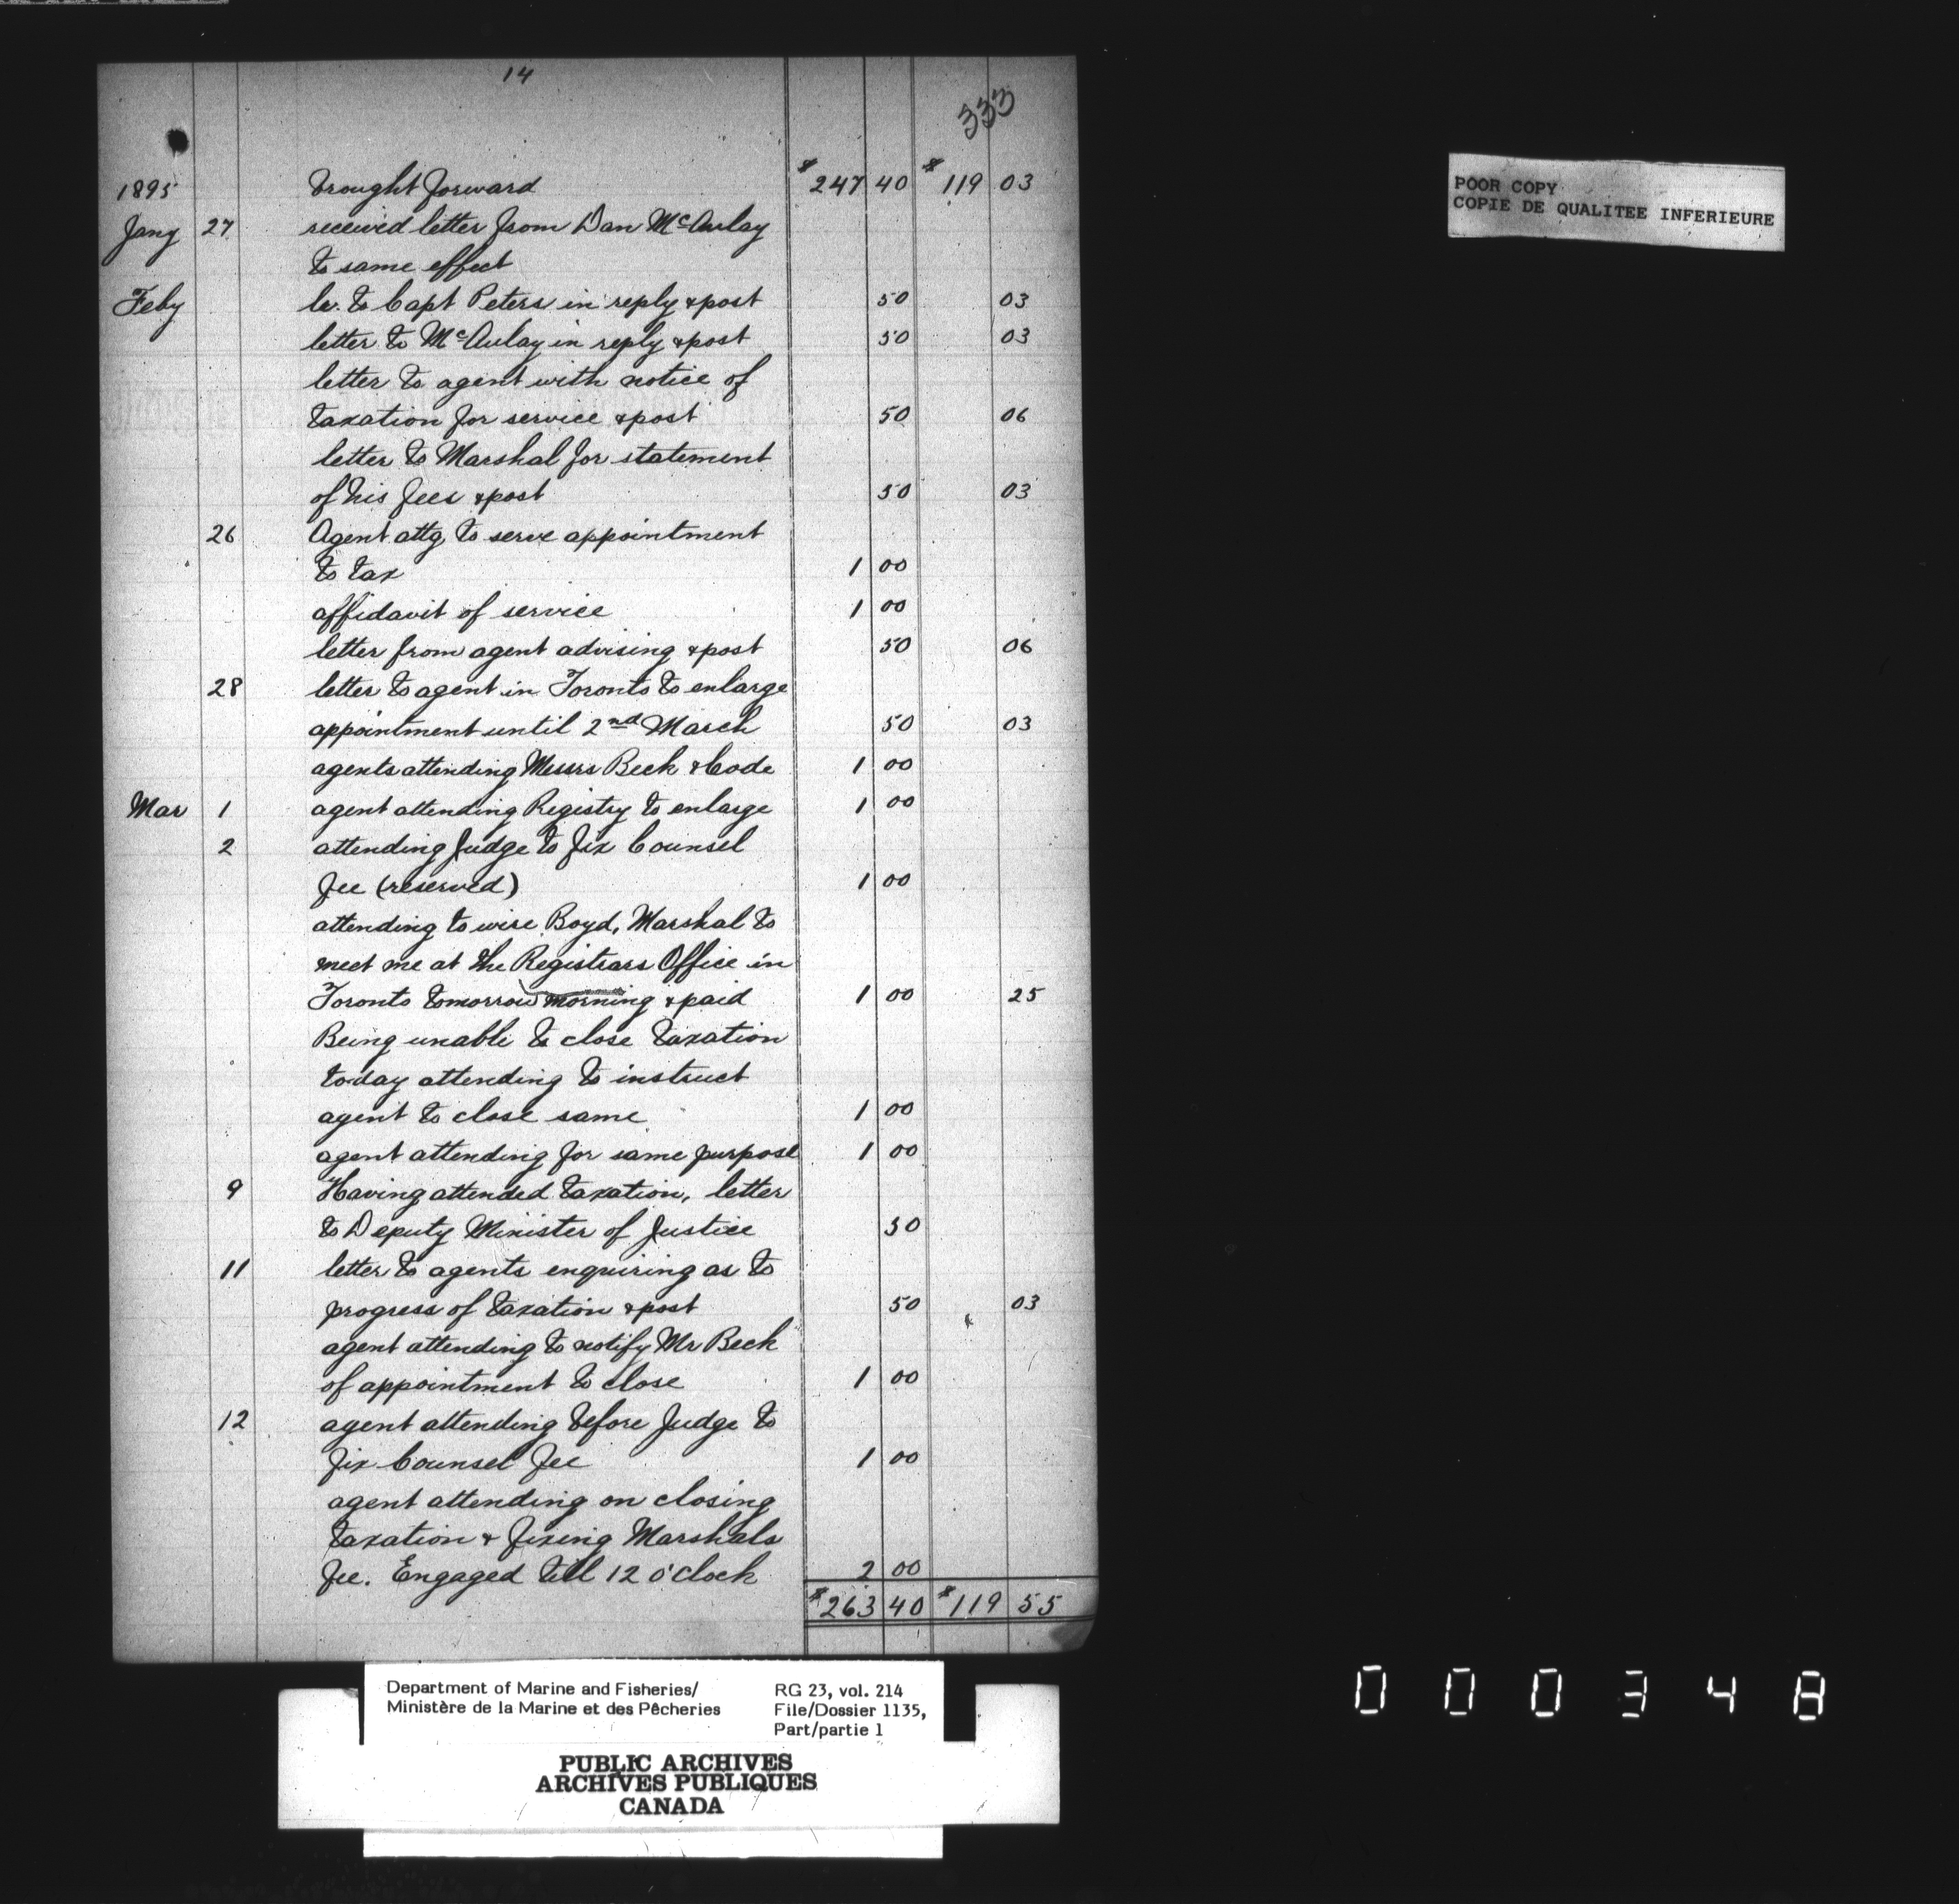 14
333
POOR COPY
COPIE DE QUALITEE INFERIEURE
1895 brought forward $247 40 $119 03
Jany 27 received letter from Dan McAulay
to same effect
Feby lr. to Capt Peters in reply & post 50 03
letter to McAulay in reply & post 50 03
letter to agent with notice of
taxation for service & post 50 06
letter to Marshal for statement
of his fees & post 50 03
26 Agent attg to serve appointment
to tax 1 00
affidavit of service 1 00
letter from agent advising & post 50 06
28 letter to agent in Toronto to enlarge
appointment until 2nd March 50 03
agents attending Messrs Beck & Code 1 00
Mar 1 agent attending Registry to enlarge 1 00
2 attending Judge to fix Counsel
fee (reserved) 1 00
attending to wire Boyd, Marshal to
meet me at the Registrars Office in
Toronto tomorrow morning & paid 1 00 25
Being unable to close taxation
today attending to instruct
agent to close same 1 00
agent attending for same purpose 1 00
9 Having attended taxation, letter
to Deputy Minister of Justice 50
11 letter to agents enquiring as to
progress of taxation & post 50 03
agent attending to notify Mr Beck
of appointment to close 1 00
12 agent attending before Judge to
fix Counsel fee 1 00
agent attending on closing
taxation & fixing Marshals
fee. Engaged till 12 o'clock 2 00
$263 40 $119 55
Department of Marine and Fisheries/
Ministère de la Marine et des Pêcheries
RG 23, vol. 214
File/Dossier 1135,
Part/partie 1
PUBLIC ARCHIVES
ARCHIVES PUBLIQUES
CANADA
000348